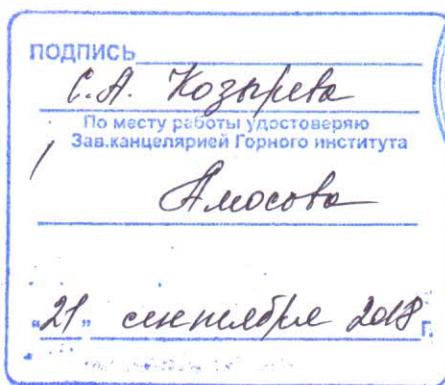 ПОДПИСЬ
С.А. Козырева
По месту работы удостоверяю
Зав.канцелярией Горного института
Амосова
"21" сентября 2018 г.